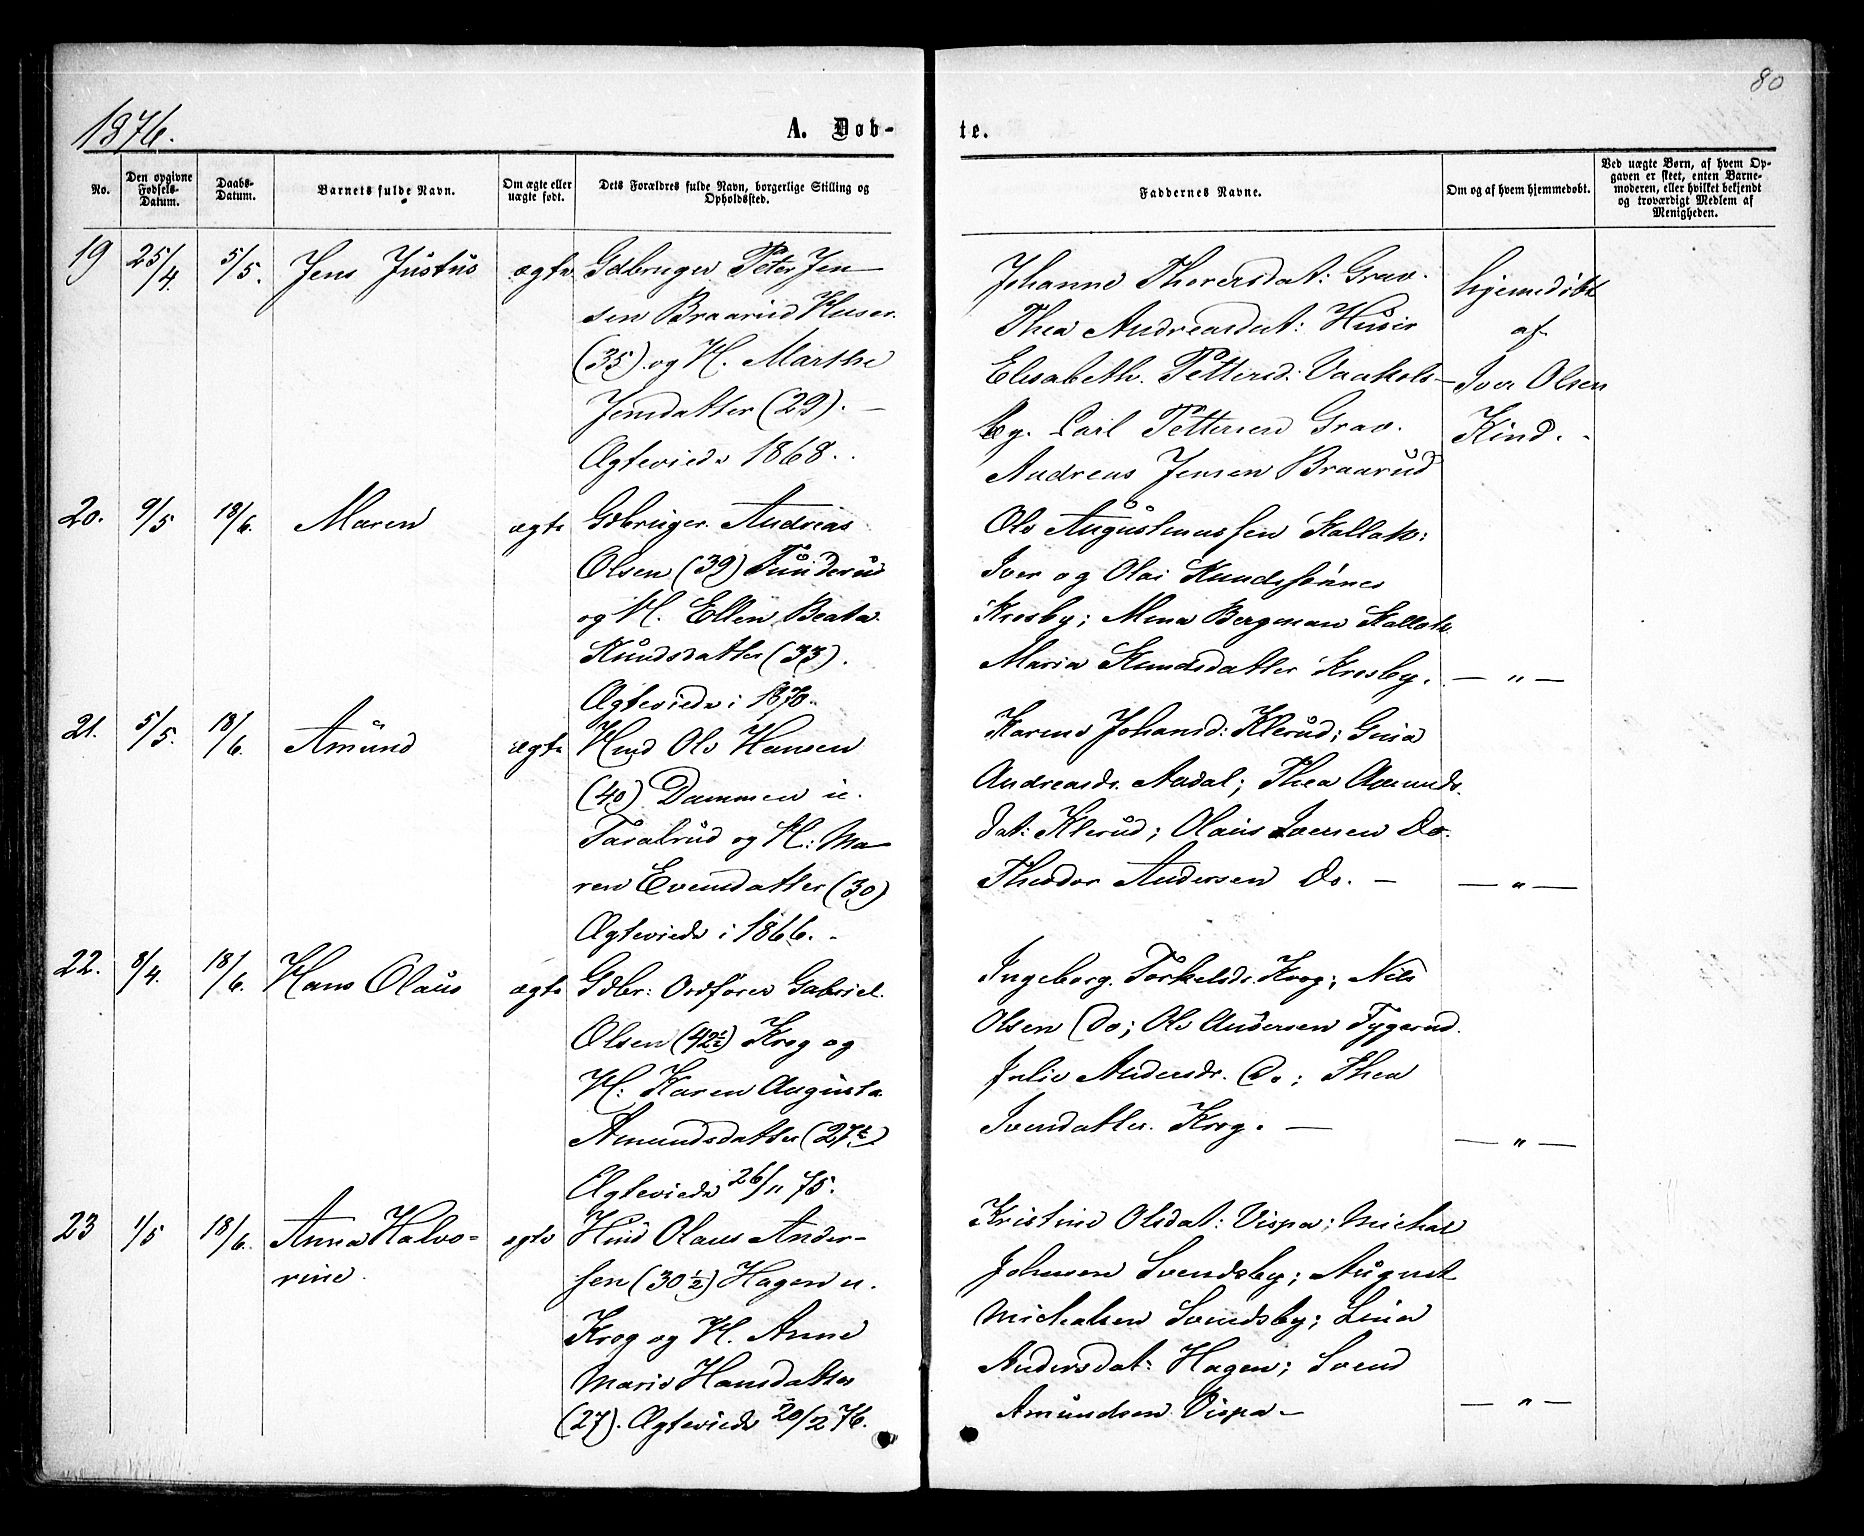 80
1876.
A. Døb-
te.
No.
Den opgivne
Fødsels-
Datum.
Daabs-
Datum.
Barnets fulde Navn.
Om ægte eller
uægte født.
Dets Forældres fulde Navn, borgerlige Stilling og
Opholdssted.
Faddernes Navne.
Om og af hvem hjemmedøbt.
Ved uægte Børn, af hvem Op-
gaven er skeet, enten Barne-
moderen, eller hvilket bekjendt
og troværdigt Medlem af
Menigheden.
19 25/4. 5/5. Jens Justus ægte
Gdbruger Peter Jen-
sen Braarud Huser.
(35). og H. Marthe
Jensdatter (29). -
Ægteviede 1868.
Johanne Thorersdat: Grav.
Thea Andreasdat: Huser
Elisabeth. Petters d: Vaakols-
by. Carl Pettersen Grav.
Andreas Jensen Braarud
hjemedøbt
af
Iver Olsen
Kind.
20. 9/5 18/6. Maren ægte
Gdbruger. Andreas
Olsen (39) Funderud
og H. Ellen Beata
Knudsdatter (33).
Ægteviede i 1870.
Ole Augustinussen Kallak:
Iver og Olai Knudssønner
Krosby; Mina Bergman Kallak
Maria Knudsdatter Krosby.
— " —
21. 5/5. 18/6. Amund ægte
Hmd Ole Hansen
(40) Dammen u.
Taralrud og H: Ma-
ren Evensdatter (30)
Ægteviede i 1866. -
Karene Johansd: Klerud; Gina
Andreasdr. Aadal; Thea Amunds-
dat: Klerud; Olaus Iversen Do.
Theodor Andersen Do. -
— " —
22. 8/4. 18/6. Hans Olaus ægte
Gdbr: Ordfører Gabriel
Olsen (42½) Krog og
H: Karen Augusta
Amundsdatter (27)
Ægteviede 26/11 75.
Ingeborg Torkelsdr. Krog; Nils
Olsen Do; Ole Andersen Tygerud.
Julie Andersdr. Do; Thea
Svendatter. Krog. —
— " —
23 1/5 18/6. Anna Halvo-
rine. ægte
Hmd Olaus Ander-
sen (30½) Hagen u.
Krog og H. Anne
Marie Hansdatter
(27). Ægteviede 20/2 76.
Kristine Olsdat: Vispa; Michal
Johnsen Svendsby; August
Michalsen Svendsby; Lina
Andersdat: Hagen; Svend
Amundsen Vispa -
— " —